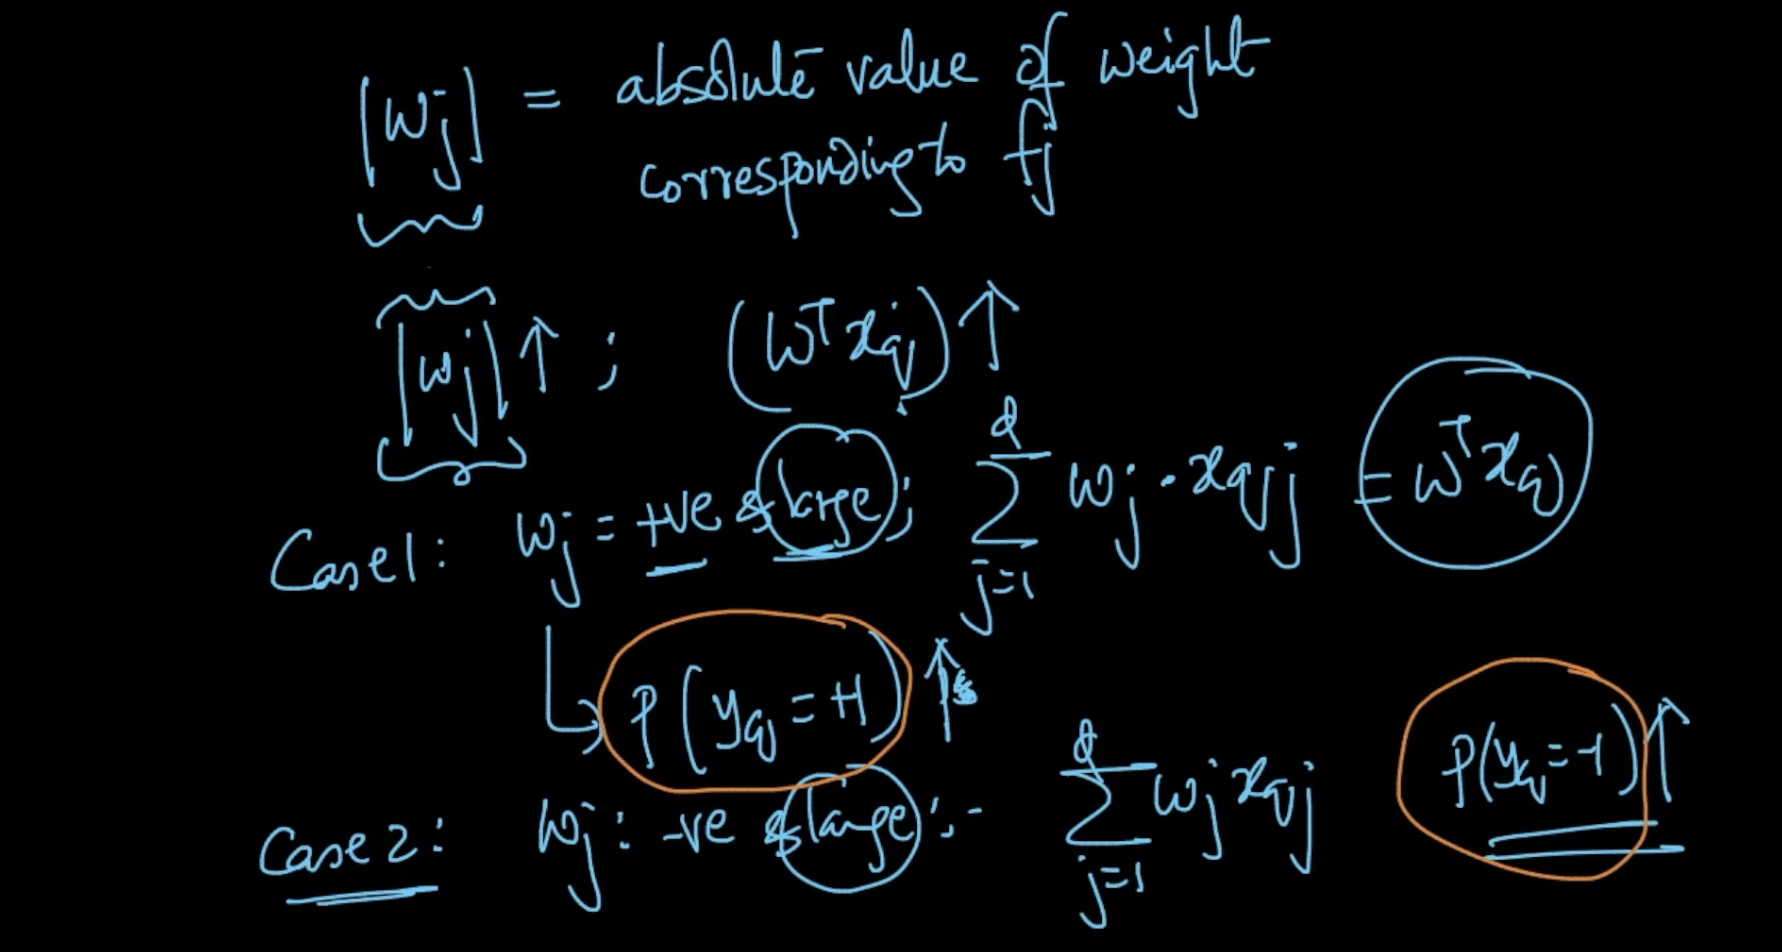 |wj| = absolute value of weight
corresponding to fj
|wj| ↑ ; (wᵀxq) ↑
Case1: wj = +ve & large; ∑_{j=1}^{d} wj · xqj = wᵀxq
↳ P(yq = +1) ↑
Case 2: wj : -ve & large :- ∑_{j=1}^{d} wj xqj P(yq = -1) ↑